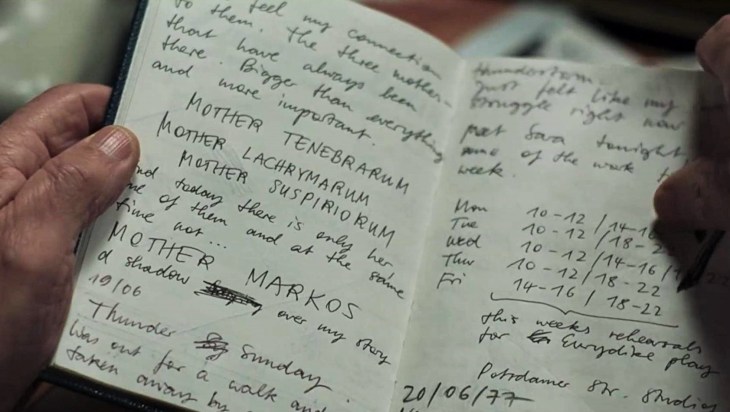 feel my connection
to them. The three mother-
that have always been
there. Bigger than everything
and more important.
MOTHER TENEBRARUM
MOTHER LACHRYMARUM
MOTHER SUSPIRIORUM
nd today there is only her
ne of them and at the same
time not...
MOTHER MARKOS
a shadow over my story
19/06
Thunder Sunday.
Was out for a walk and
taken away by
thunderstorm.
just felt like my
struggle right now
met Sara tonight,
some of the work
week.
Mon 10-12 / 14-16
Tue 10-12 / 18-22
Wed 10-12 / 14-16 /
Thur 10-12 / 18-22
Fri 14-16 / 18-22
this weeks rehearsals
for Eurydike play
Potsdamer Str. Studios
20/06/77